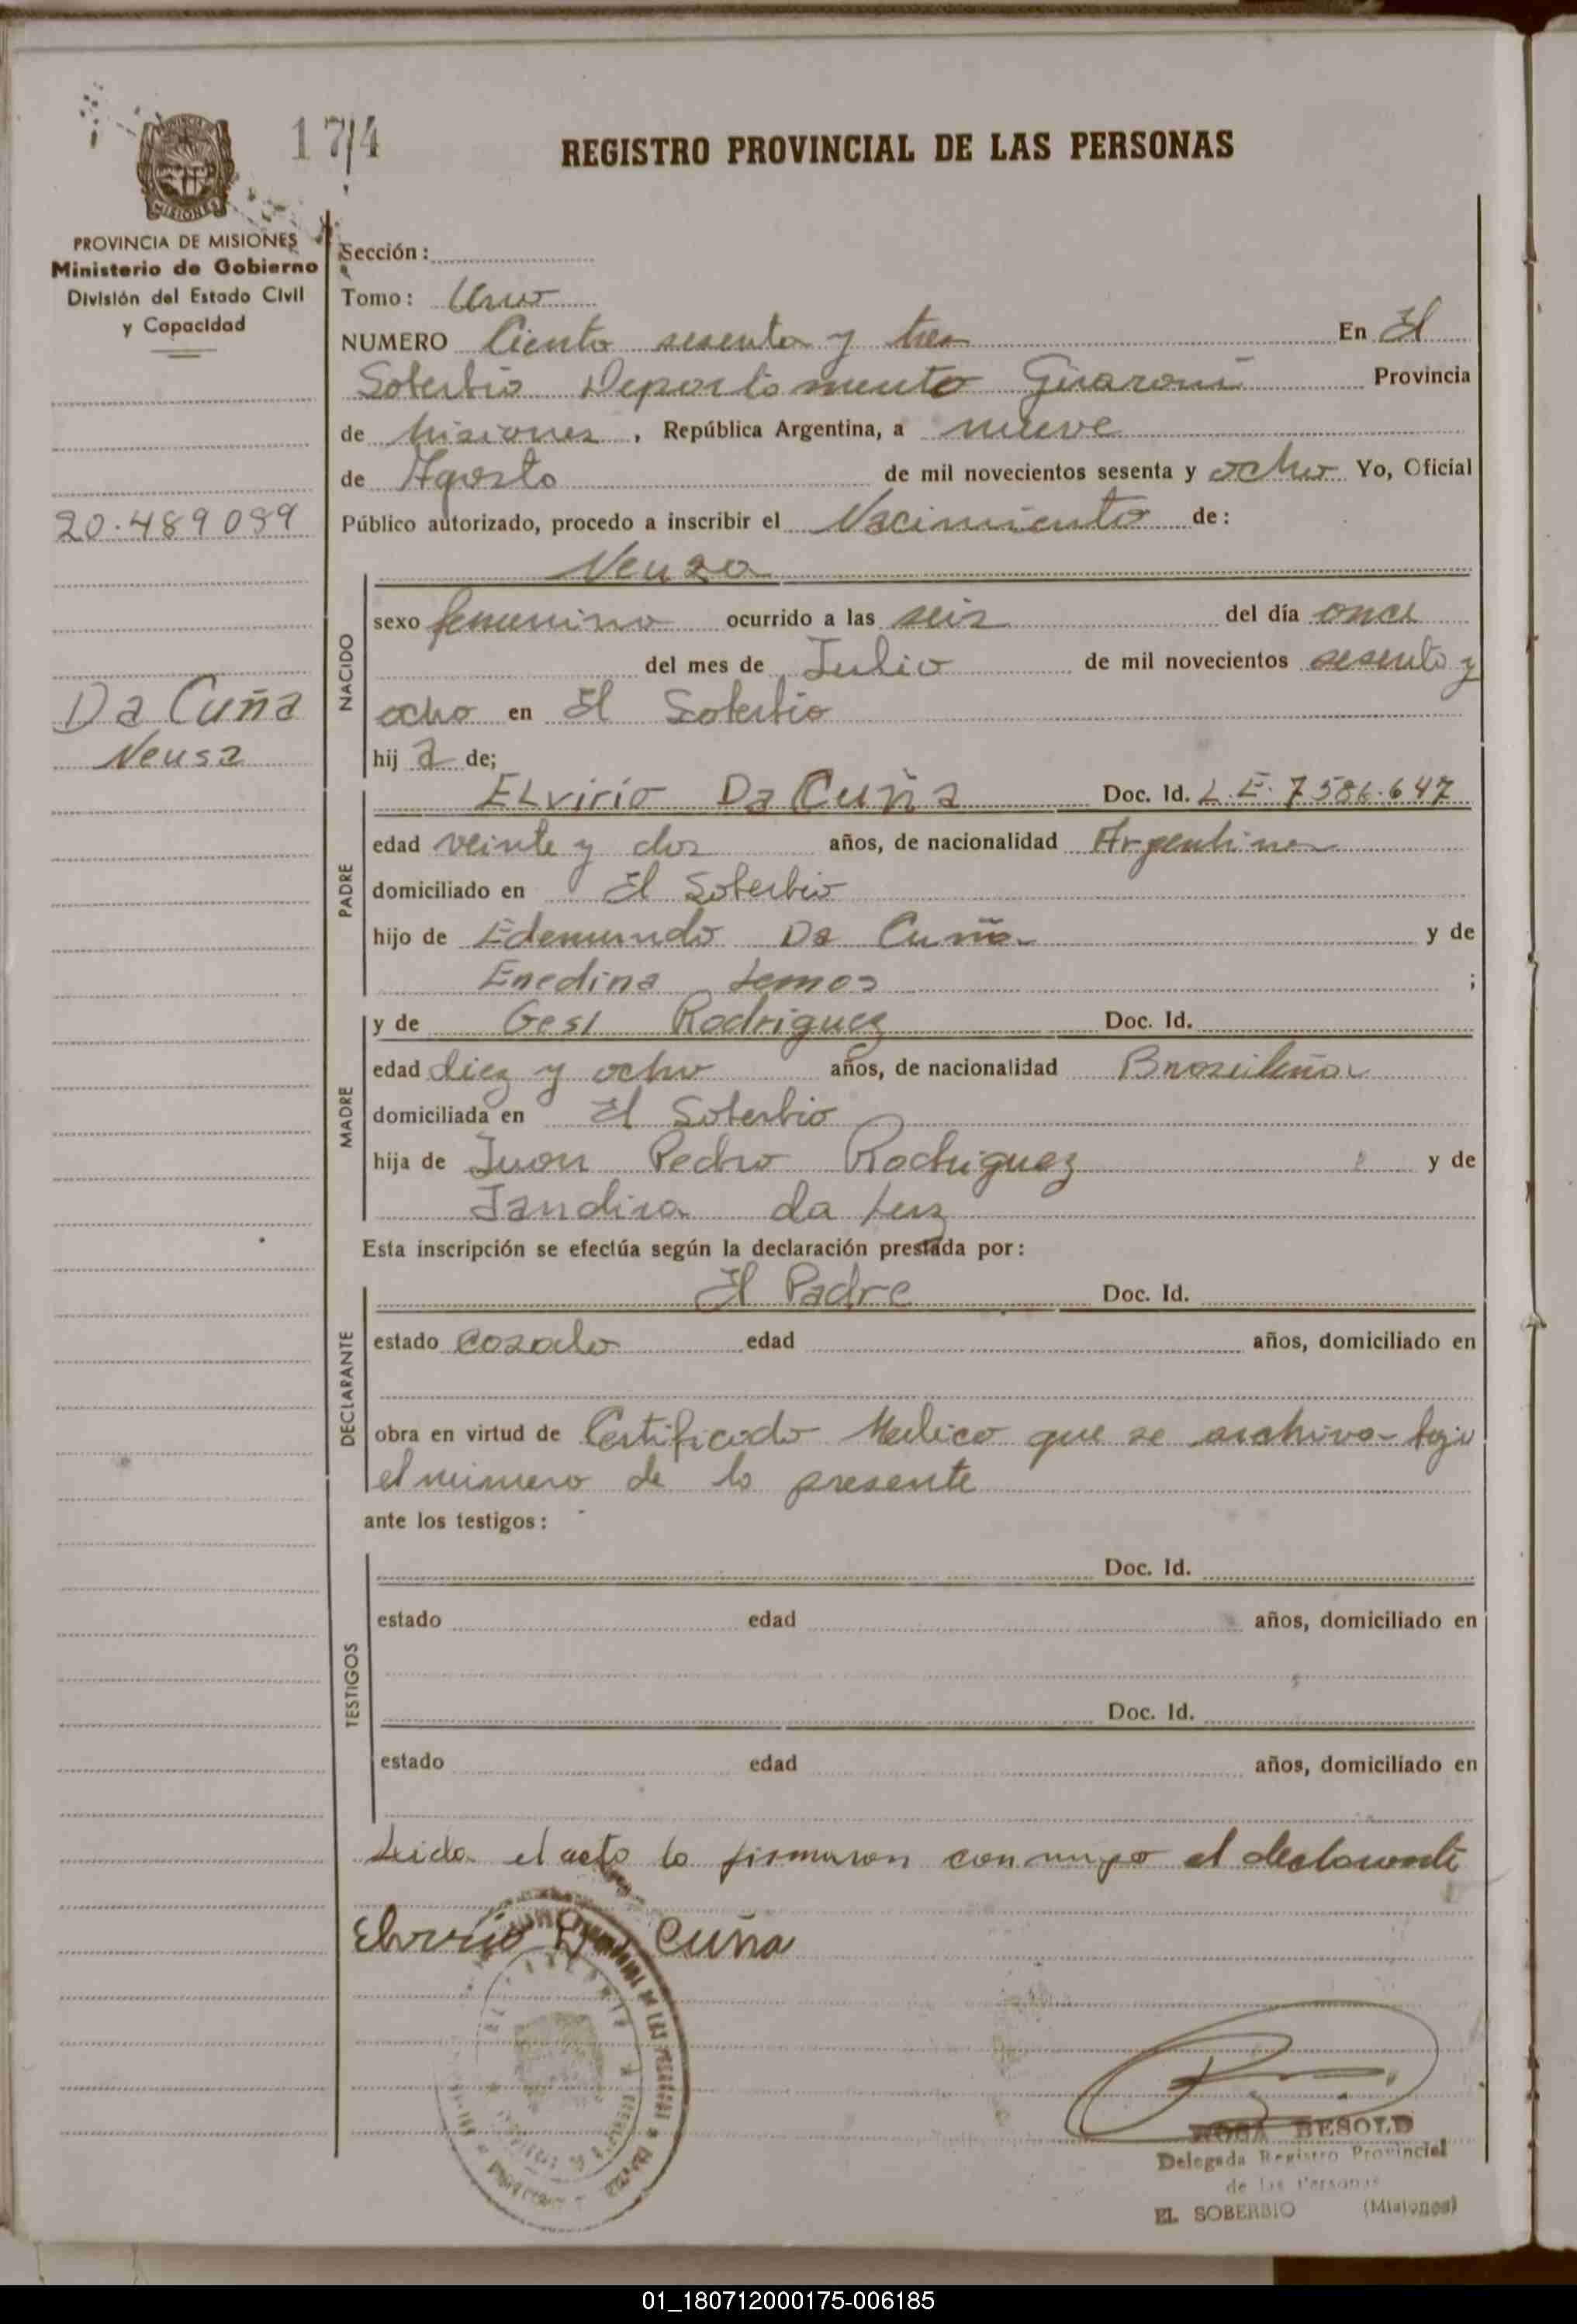 174
REGISTRO PROVINCIAL DE LAS PERSONAS
MISIONES
PROVINCIA DE MISIONES
Ministerio de Gobierno
División del Estado Civil
y Capacidad
20.489099
Da Cuña
Neusa
Sección:
Tomo: Uno
NUMERO Ciento sesenta y tres En El
Soberbio Departamento Guarani Provincia
de Misiones, República Argentina, a nueve
de Agosto de mil novecientos sesenta y ocho Yo, Oficial
Público autorizado, procedo a inscribir el Nacimiento de:
Neusa
NACIDO
sexo femenino ocurrido a las seis del día once
del mes de Julio de mil novecientos sesenta y
ocho en El Soberbio
hija de;
PADRE
ELvirio Da Cuña Doc. Id. L.E. 7586.647
edad veinte y dos años, de nacionalidad Argentina
domiciliado en El Soberbio
hijo de Edemundo Da Cuña y de
Enedina Lemos ;
MADRE
y de Gesi Rodriguez Doc. Id.
edad diez y ocho años, de nacionalidad Brasileña
domiciliada en El Soberbio
hija de Juan Pedro Rodriguez y de
Jandira da Luz
Esta inscripción se efectúa según la declaración prestada por:
DECLARANTE
El Padre Doc. Id.
estado casado edad años, domiciliado en
obra en virtud de Certificado Medico que se archiva bajo
el numero de la presente
ante los testigos:
TESTIGOS
Doc. Id.
estado edad años, domiciliado en
Doc. Id.
estado edad años, domiciliado en
Leida el acta la firmaron conmigo el declarante
Elvirio Da Cuña
ROSA BESOLD
Delegada Registro Provincial
de las Personas
EL SOBERBIO (Misiones)
01_180712000175-006185